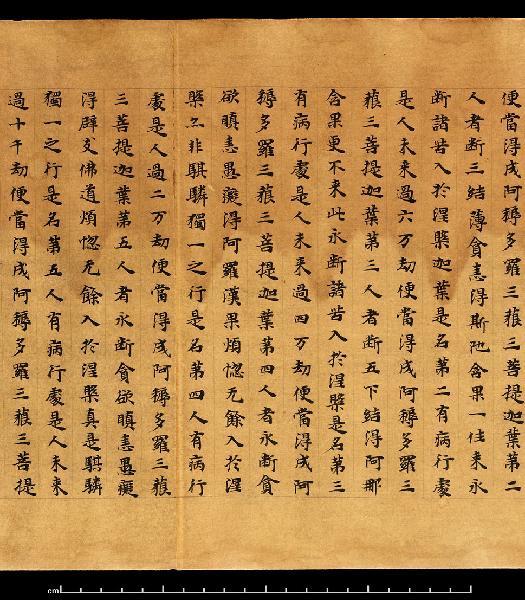 便當得成阿耨多羅三藐三菩提迦葉第二
人者断三結薄貪恚得斯陁含果一往来永
断諸苦入於涅槃迦葉是名第二有病行處
是人未来過六万劫便當得成阿耨多羅三
藐三菩提迦葉第三人者断五下結得阿那
含果更不来此永断諸苦入於涅槃是名第三
有病行處是人未来過四万劫便當得成阿
耨多羅三藐三菩提迦葉第四人者永断貪
欲瞋恚愚癡得阿羅漢果煩惱无餘入於涅
槃亦非騏驎獨一之行是名第四人有病行
處是人過二万劫便當得成阿耨多羅三藐
三菩提迦葉第五人者永断貪欲瞋恚愚癡
得辟支佛道煩惱无餘入於涅槃真是騏驎
獨一之行是名第五人有病行處是人未来
過十千劫便當得成阿耨多羅三藐三菩提
cm